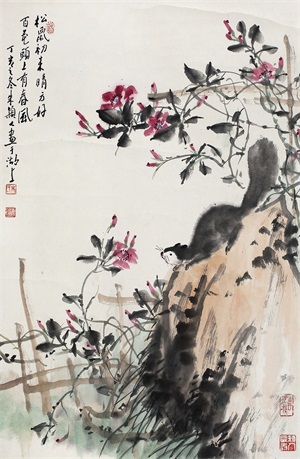 松鼠初来晴方好
百花頭上有春風
丁亥之冬朱颖人画于湖上